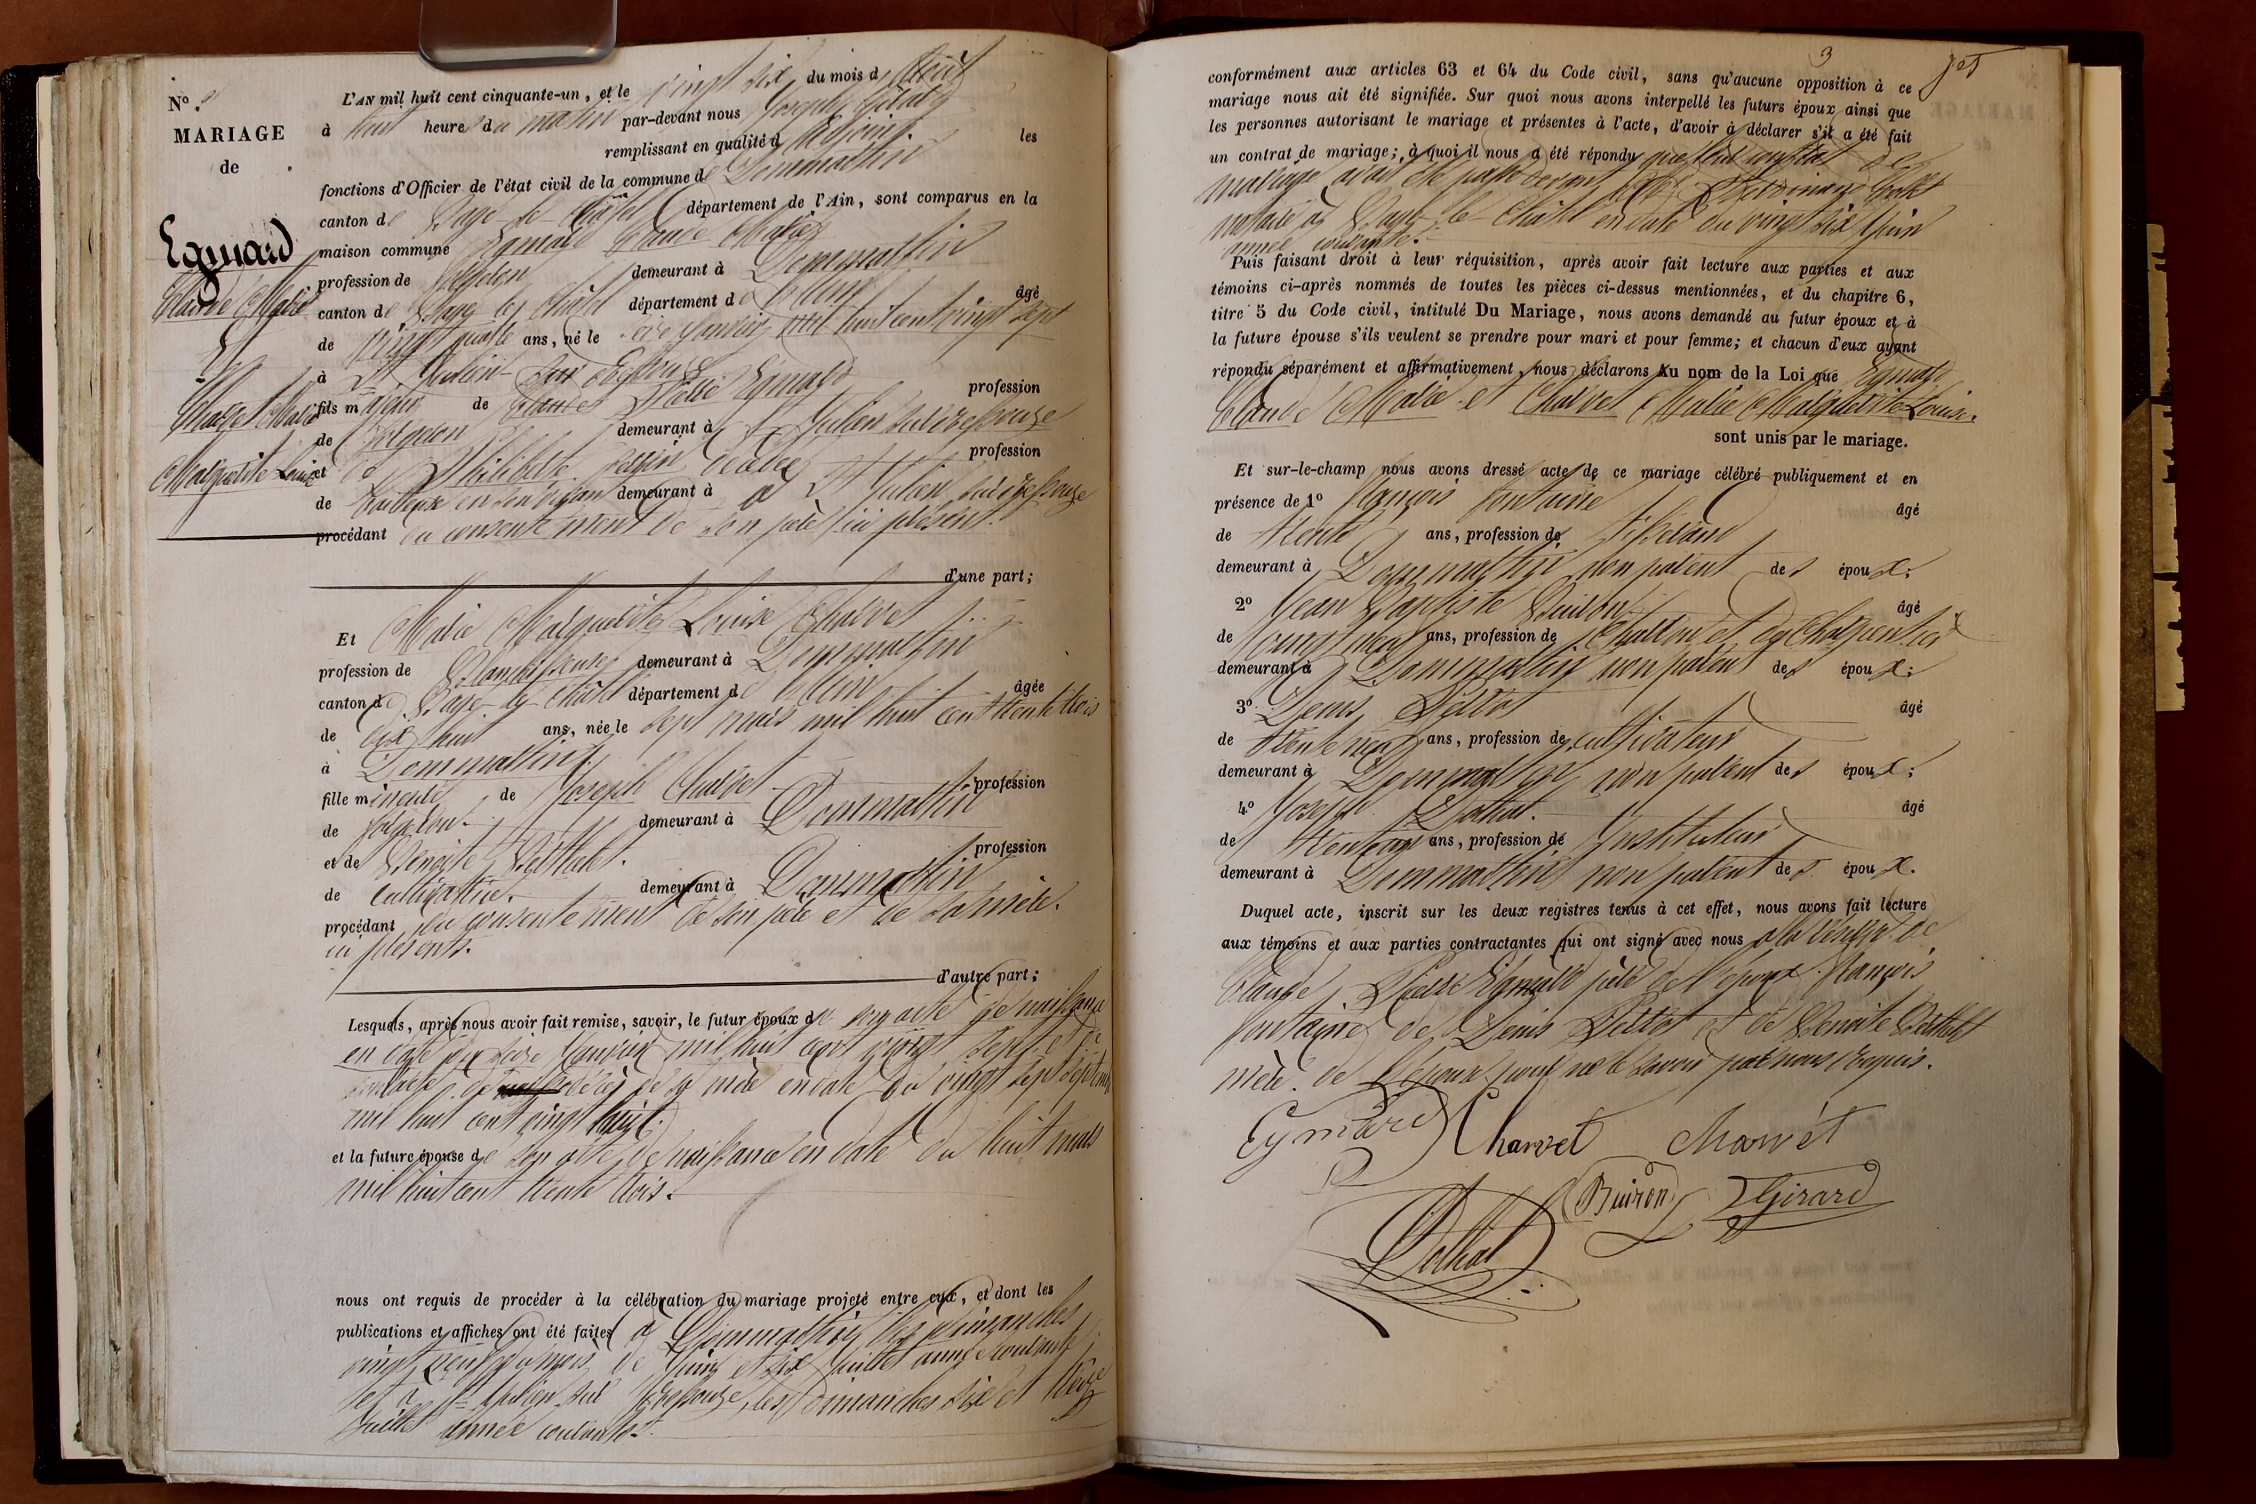 N°.
MARIAGE
de
Eymard
Claude Marie
&
Charvet Marie
Marguerite Louise
L'AN mil huit cent cinquante-un, et le vingt six du mois d'Août
à huit heures du matin par-devant nous Joseph Girard
remplissant en qualité d'Adjoint les
fonctions d'Officier de l'état civil de la commune de Dommartin
canton de Bagé-le-Châtel département de l'Ain, sont comparus en la
maison commune Eymard Claude Marie
profession de demeurant à Dommartin
canton de Bagé le Châtel département de l'Ain âgé
de vingt quatre ans, né le seize Janvier mil huit cent vingt sept
à St Julien sur Reyssouze
fils majeur de Claude Pierre Eymard profession
de demeurant à St Julien sur Reyssouze
et de Philiberte décédée profession
de en son vivant demeurant à à St Julien sur Reyssouze
procédant du consentement de son père ici présent.
d'une part;
Et Marie Marguerite Louise Charvet
profession de Blanchisseuse demeurant à Dommartin
canton de Bagé-le-Châtel département de l'Ain âgée
de dix huit ans, née le sept mars mil huit cent trente trois
à Dommartin
fille mineure de Joseph Charvet profession
de demeurant à Dommartin
et de Benoite Berthet profession
de cultivatrice demeurant à Dommartin
procédant du consentement de son père et de sa mère
ici présents.
d'autre part;
Lesquels, après nous avoir fait remise, savoir, le futur époux de son acte de naissance
en date du seize Janvier mil huit cent vingt sept et de
décès de sa mère en date du vingt sept septembre
mil huit cent vingt huit.
et la future épouse de son acte de naissance en date du huit mars
mil huit cent trente trois.
nous ont requis de procéder à la célébration du mariage projeté entre eux, et dont les
publications et affiches ont été faites à Dommartin les dimanches
vingt neuf du mois de Juin et six Juillet année courante
et à St Julien sur Reyssouze, les dimanches six et treize
Juillet année courante.
3
conformément aux articles 63 et 64 du Code civil, sans qu'aucune opposition à ce
mariage nous ait été signifiée. Sur quoi nous avons interpellé les futurs époux ainsi que
les personnes autorisant le mariage et présentes à l'acte, d'avoir à déclarer s'il a été fait
un contrat de mariage; à quoi il nous a été répondu que leur contrat de
mariage avait été passé devant
notaire à Bagé-le-Châtel en date du vingt six Juin
année courante.
Puis faisant droit à leur réquisition, après avoir fait lecture aux parties et aux
témoins ci-après nommés de toutes les pièces ci-dessus mentionnées, et du chapitre 6,
titre 5 du Code civil, intitulé Du Mariage, nous avons demandé au futur époux et à
la future épouse s'ils veulent se prendre pour mari et pour femme; et chacun d'eux ayant
répondu séparément et affirmativement, nous déclarons Au nom de la Loi que Eymard
Claude Marie et Charvet Marie Marguerite Louise.
sont unis par le mariage.
Et sur-le-champ nous avons dressé acte de ce mariage célébré publiquement et en
présence de 1° François Fontaine âgé
de trente ans, profession de Tisserand
demeurant à Dommartin non parent des époux;
2° Jean Baptiste Buiron âgé
de vingt neuf ans, profession de Charron et de Charpentier
demeurant à Dommartin non parent des époux;
3° Denis âgé
de trente neuf ans, profession de cultivateur
demeurant à Dommartin non parent des époux;
4° Joseph âgé
de ans, profession de Instituteur
demeurant à Dommartin non parent des époux.
Duquel acte, inscrit sur les deux registres tenus à cet effet, nous avons fait lecture
aux témoins et aux parties contractantes qui ont signé avec nous à la réserve de
Claude Pierre Eymard père de l'époux François
Fontaine de Denis et de Benoite Berthet
mère de l'épouse pour ne le savoir par nous requis.
Eymard Charvet Charvét
Buiron Girard